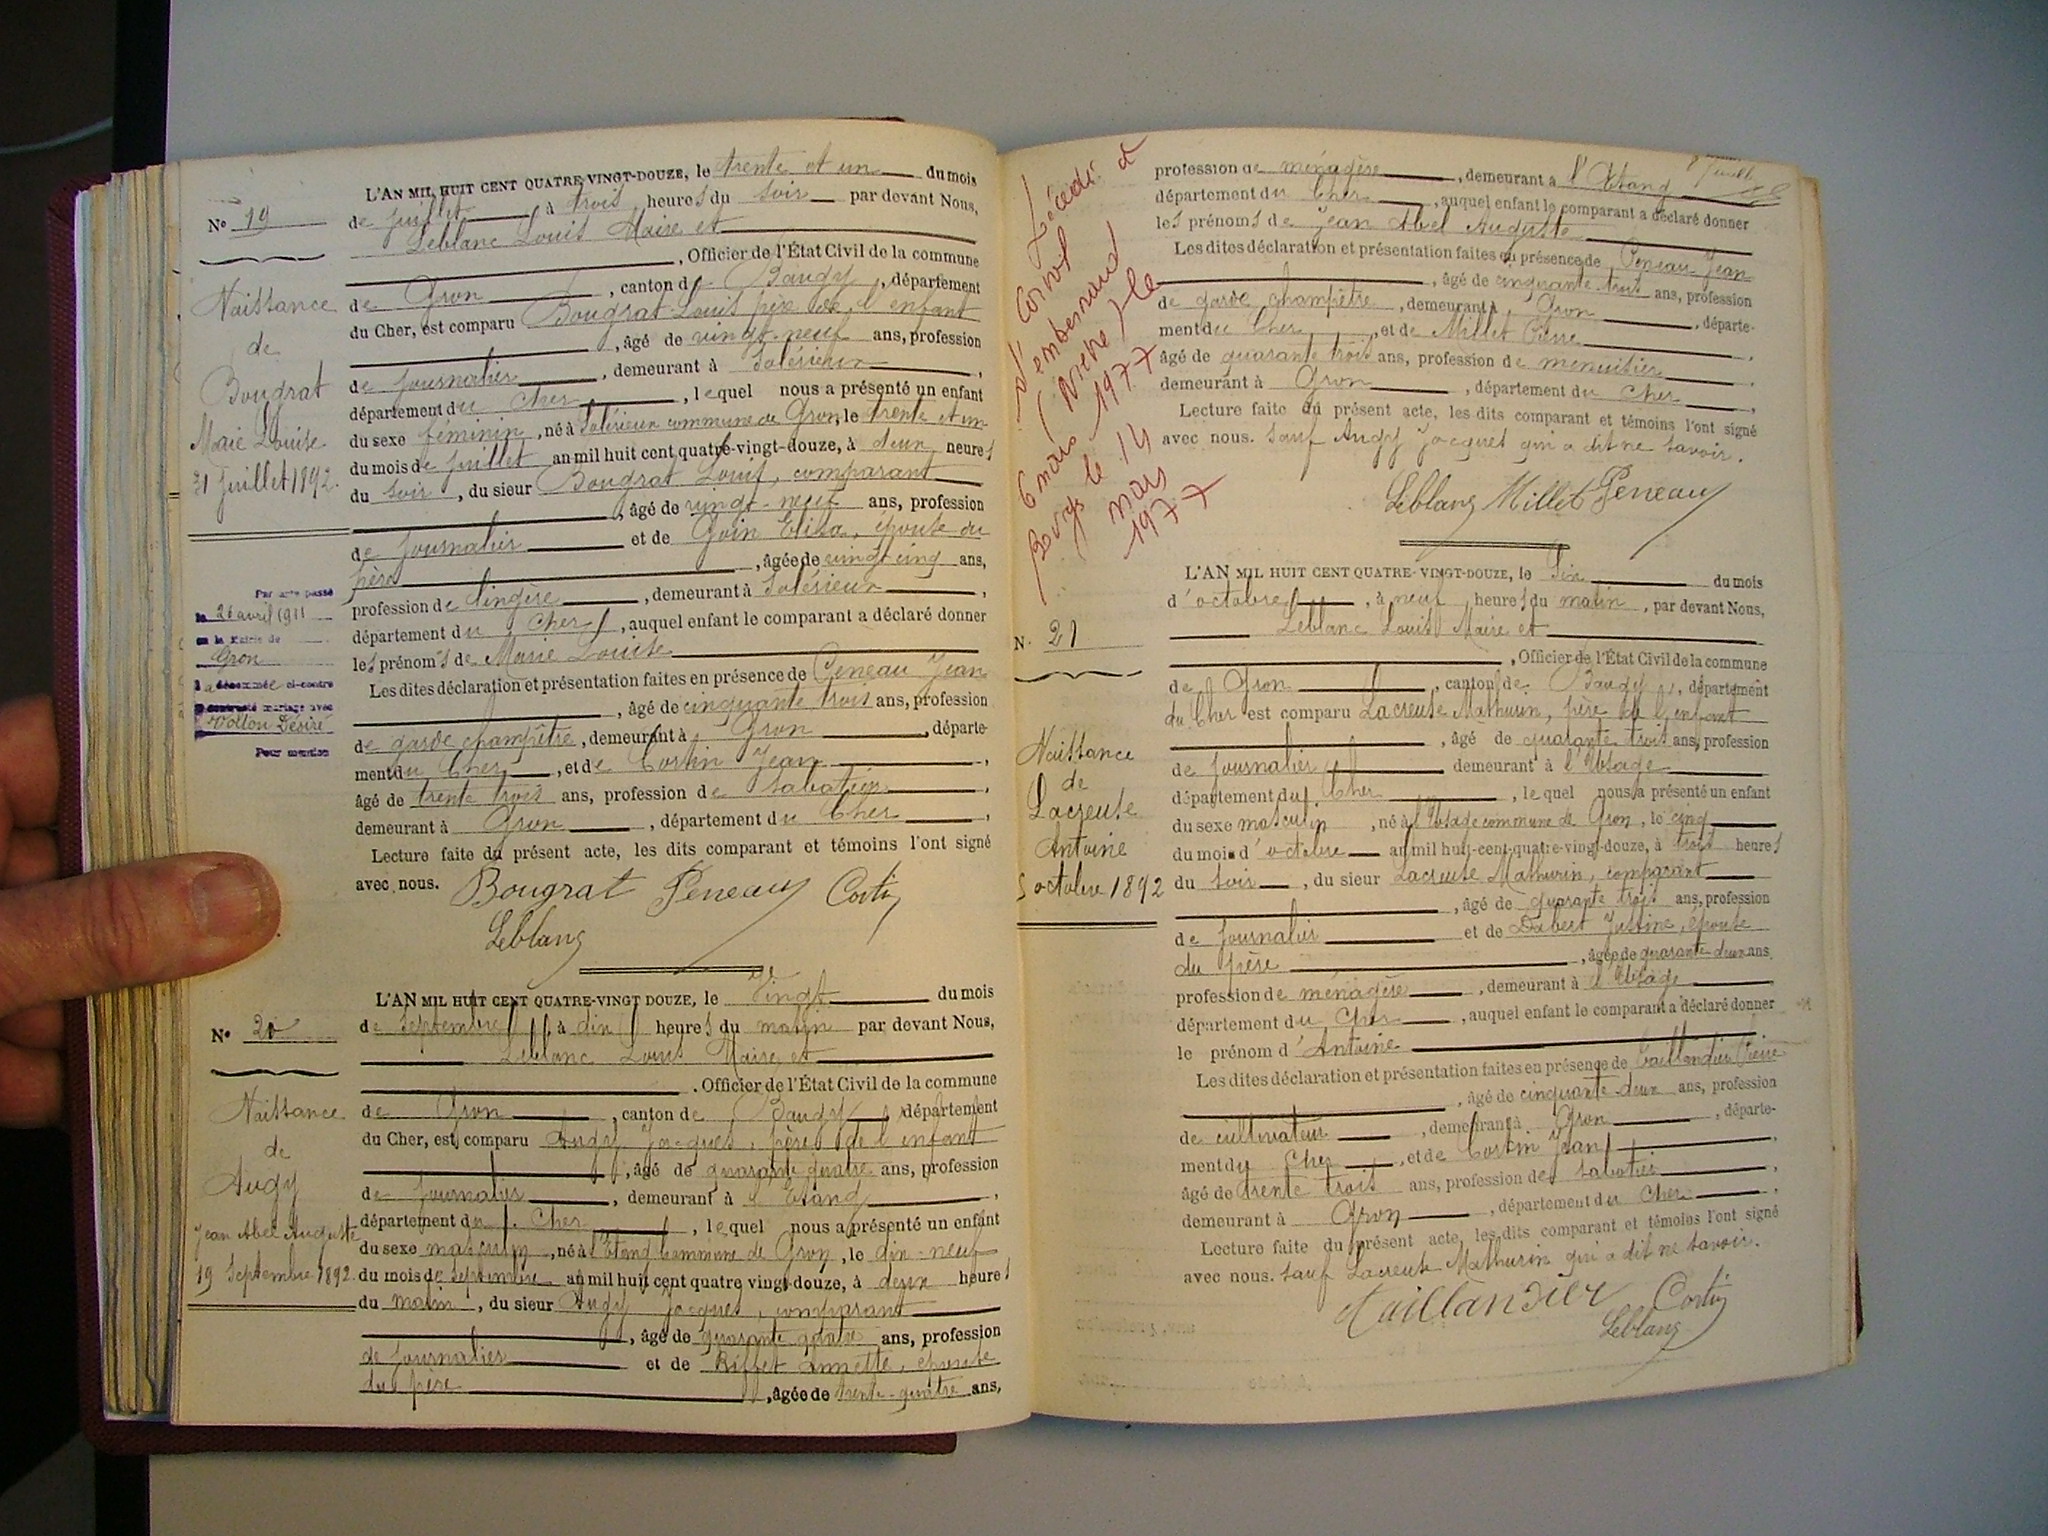 L'AN MIL HUIT CENT QUATRE-VINGT-DOUZE, le trente et un du mois
de juillet à trois heures du soir par devant Nous,
Leblanc Louis Maire et
, Officier de l'État Civil de la commune
de Gron, canton de Baugy, département
du Cher, est comparu Bougrat Louis père de l'enfant
, âgé de vingt-neuf ans, profession
de journalier, demeurant à Salérieux,
département du Cher, lequel nous a présenté un enfant
du sexe féminin, né à Salérieux commune de Gron, le trente et un
du mois de juillet an mil huit cent quatre-vingt-douze, à deux heures
du soir, du sieur Bougrat Louis, comparant
, âgé de vingt-neuf ans, profession
de journalier et de Goin Elisa, épouse du
père, âgée de vingt cinq ans,
profession de lingère, demeurant à Salérieux,
département du Cher, auquel enfant le comparant a déclaré donner
les prénoms de Marie Louise
Les dites déclaration et présentation faites en présence de Peneau Jean
, âgé de cinquante trois ans, profession
de garde champêtre, demeurant à Gron, départe-
ment du Cher, et de Cortin Jean,
âgé de trente trois ans, profession de sabotier,
demeurant à Gron, département du Cher,
Lecture faite du présent acte, les dits comparant et témoins l'ont signé
avec nous.
Bougrat Peneau Cortin
Leblanc
No 19
Naissance
de
Bougrat
Marie Louise
31 Juillet 1892.
Par acte passé
le 26 avril 1911
en la Mairie de
Gron
la dénommée ci-contre
a contracté mariage avec
Vollon Désiré
Pour mention
L'AN MIL HUIT CENT QUATRE-VINGT DOUZE, le Vingt du mois
de septembre à dix heures du matin par devant Nous,
Leblanc Louis Maire et
. Officier de l'État Civil de la commune
de Gron, canton de Baugy, département
du Cher, est comparu Augy Jacques, père de l'enfant
, âgé de quarante quatre ans, profession
de journalier, demeurant à l'Etang,
département du Cher, lequel nous a présenté un enfant
du sexe masculin, né à l'Etang commune de Gron, le dix-neuf
du mois de septembre an mil huit cent quatre vingt-douze, à deux heures
du matin, du sieur Augy Jacques, comparant
, âgé de quarante quatre ans, profession
de journalier et de Riffet Annette, épouse
du père, âgée de trente-quatre ans,
No 20
Naissance
de
Augy
Jean Abel Auguste
19 Septembre 1892
profession de ménagère, demeurant à l'Etang
département du Cher, auquel enfant le comparant a déclaré donner
les prénoms de Jean Abel Auguste
Les dites déclaration et présentation faites en présence de Peneau Jean
, âgé de cinquante trois ans, profession
de garde champêtre, demeurant à Gron, départe-
ment du Cher, et de Millet Pierre,
âgé de quarante trois ans, profession de menuisier,
demeurant à Gron, département du Cher,
Lecture faite du présent acte, les dits comparant et témoins l'ont signé
avec nous. sauf Augy Jacques qui a dit ne savoir.
Leblanc Millet Peneau
Décédé à
Corvol
d'embernard
(Nièvre) le
6 mars 1977
le 14
mars
1977
L'AN MIL HUIT CENT QUATRE-VINGT-DOUZE, le Six du mois
d'octobre, à neuf heures du matin, par devant Nous,
Leblanc Louis Maire et
, Officier de l'État Civil de la commune
de Gron, canton de Baugy, département
du Cher est comparu Lacreuse Mathurin, père de l'enfant
, âgé de quarante trois ans, profession
de journalier demeurant à l'Usage
département du Cher, lequel nous a présenté un enfant
du sexe masculin, né à l'Usage commune de Gron, le cinq
du mois d'octobre an mil huit-cent-quatre-vingt-douze, à trois heures
du soir, du sieur Lacreuse Mathurin, comparant
, âgé de quarante trois ans, profession
de journalier et de Dubert Justine, épouse
du père, âgée de quarante deux ans,
profession de ménagère, demeurant à l'Usage,
département du Cher, auquel enfant le comparant a déclaré donner
le prénom d'Antoine
Les dites déclaration et présentation faites en présence de Taillandier Pierre
, âgé de cinquante-deux ans, profession
de cultivateur, demeurant à Gron, départe-
ment du Cher, et de Cortin Jean,
âgé de trente trois ans, profession de sabotier,
demeurant à Gron, département du Cher,
Lecture faite du présent acte, les dits comparant et témoins l'ont signé
avec nous. sauf Lacreuse Mathurin qui a dit ne savoir.
Taillandier Cortin
Leblanc
No 21
Naissance
de
Lacreuse
Antoine
5 octobre 1892